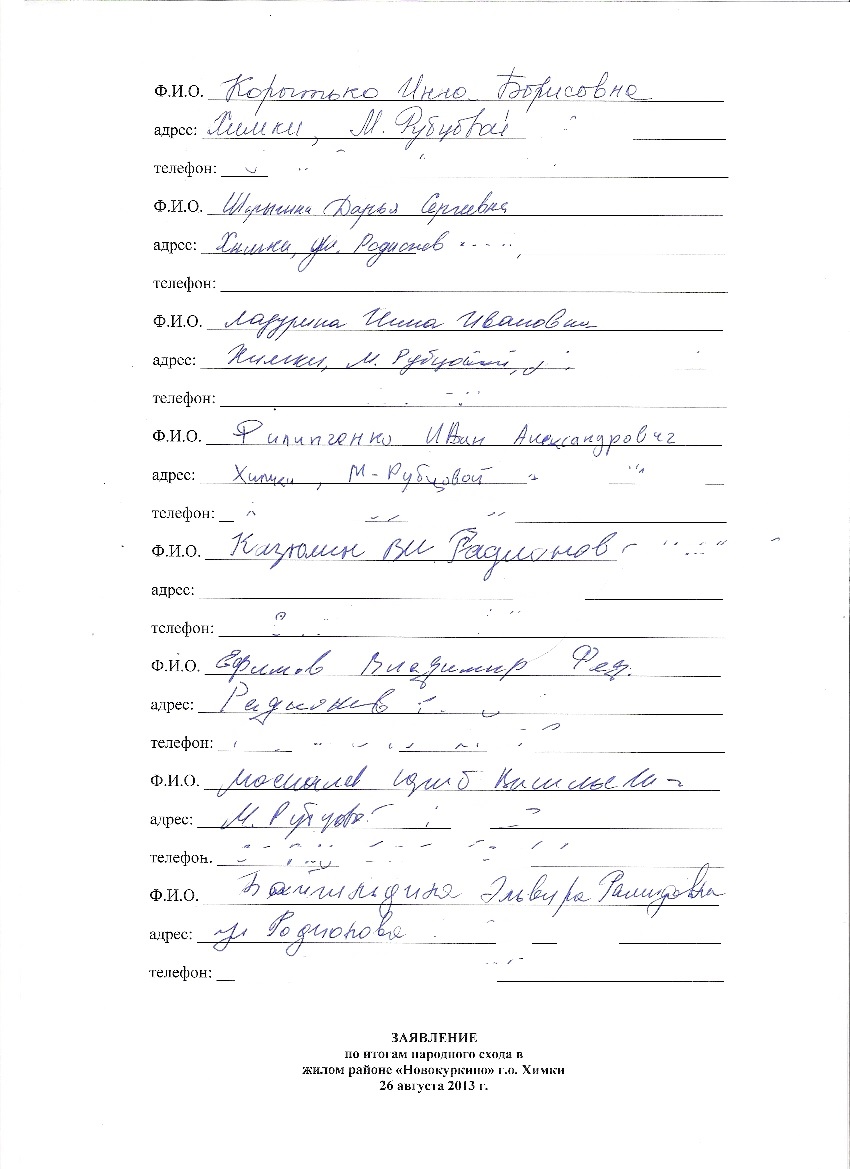 Ф.И.О. Коротько Инна Борисовна
адрес: Химки, М. Рубцовой
телефон:
Ф.И.О. Шарыгина Дарья Сергеевна
адрес: Химки, ул. Родионов
телефон:
Ф.И.О. Ладурина Нина Ивановна
адрес: Химки, М. Рубцовой,
телефон:
Ф.И.О. Филипченко Иван Александрович
адрес: Химки, М-Рубцовой
телефон:
Ф.И.О. Казюлин ВИ Радионов
адрес:
телефон:
Ф.И.О. Ефимов Владимир Фед.
адрес: Радионов
телефон:
Ф.И.О.
адрес: М. Рубцова
телефон.
Ф.И.О. Эльвира
адрес: ул Родионова
телефон:
ЗАЯВЛЕНИЕ
по итогам народного схода в
жилом районе «Новокуркино» г.о. Химки
26 августа 2013 г.